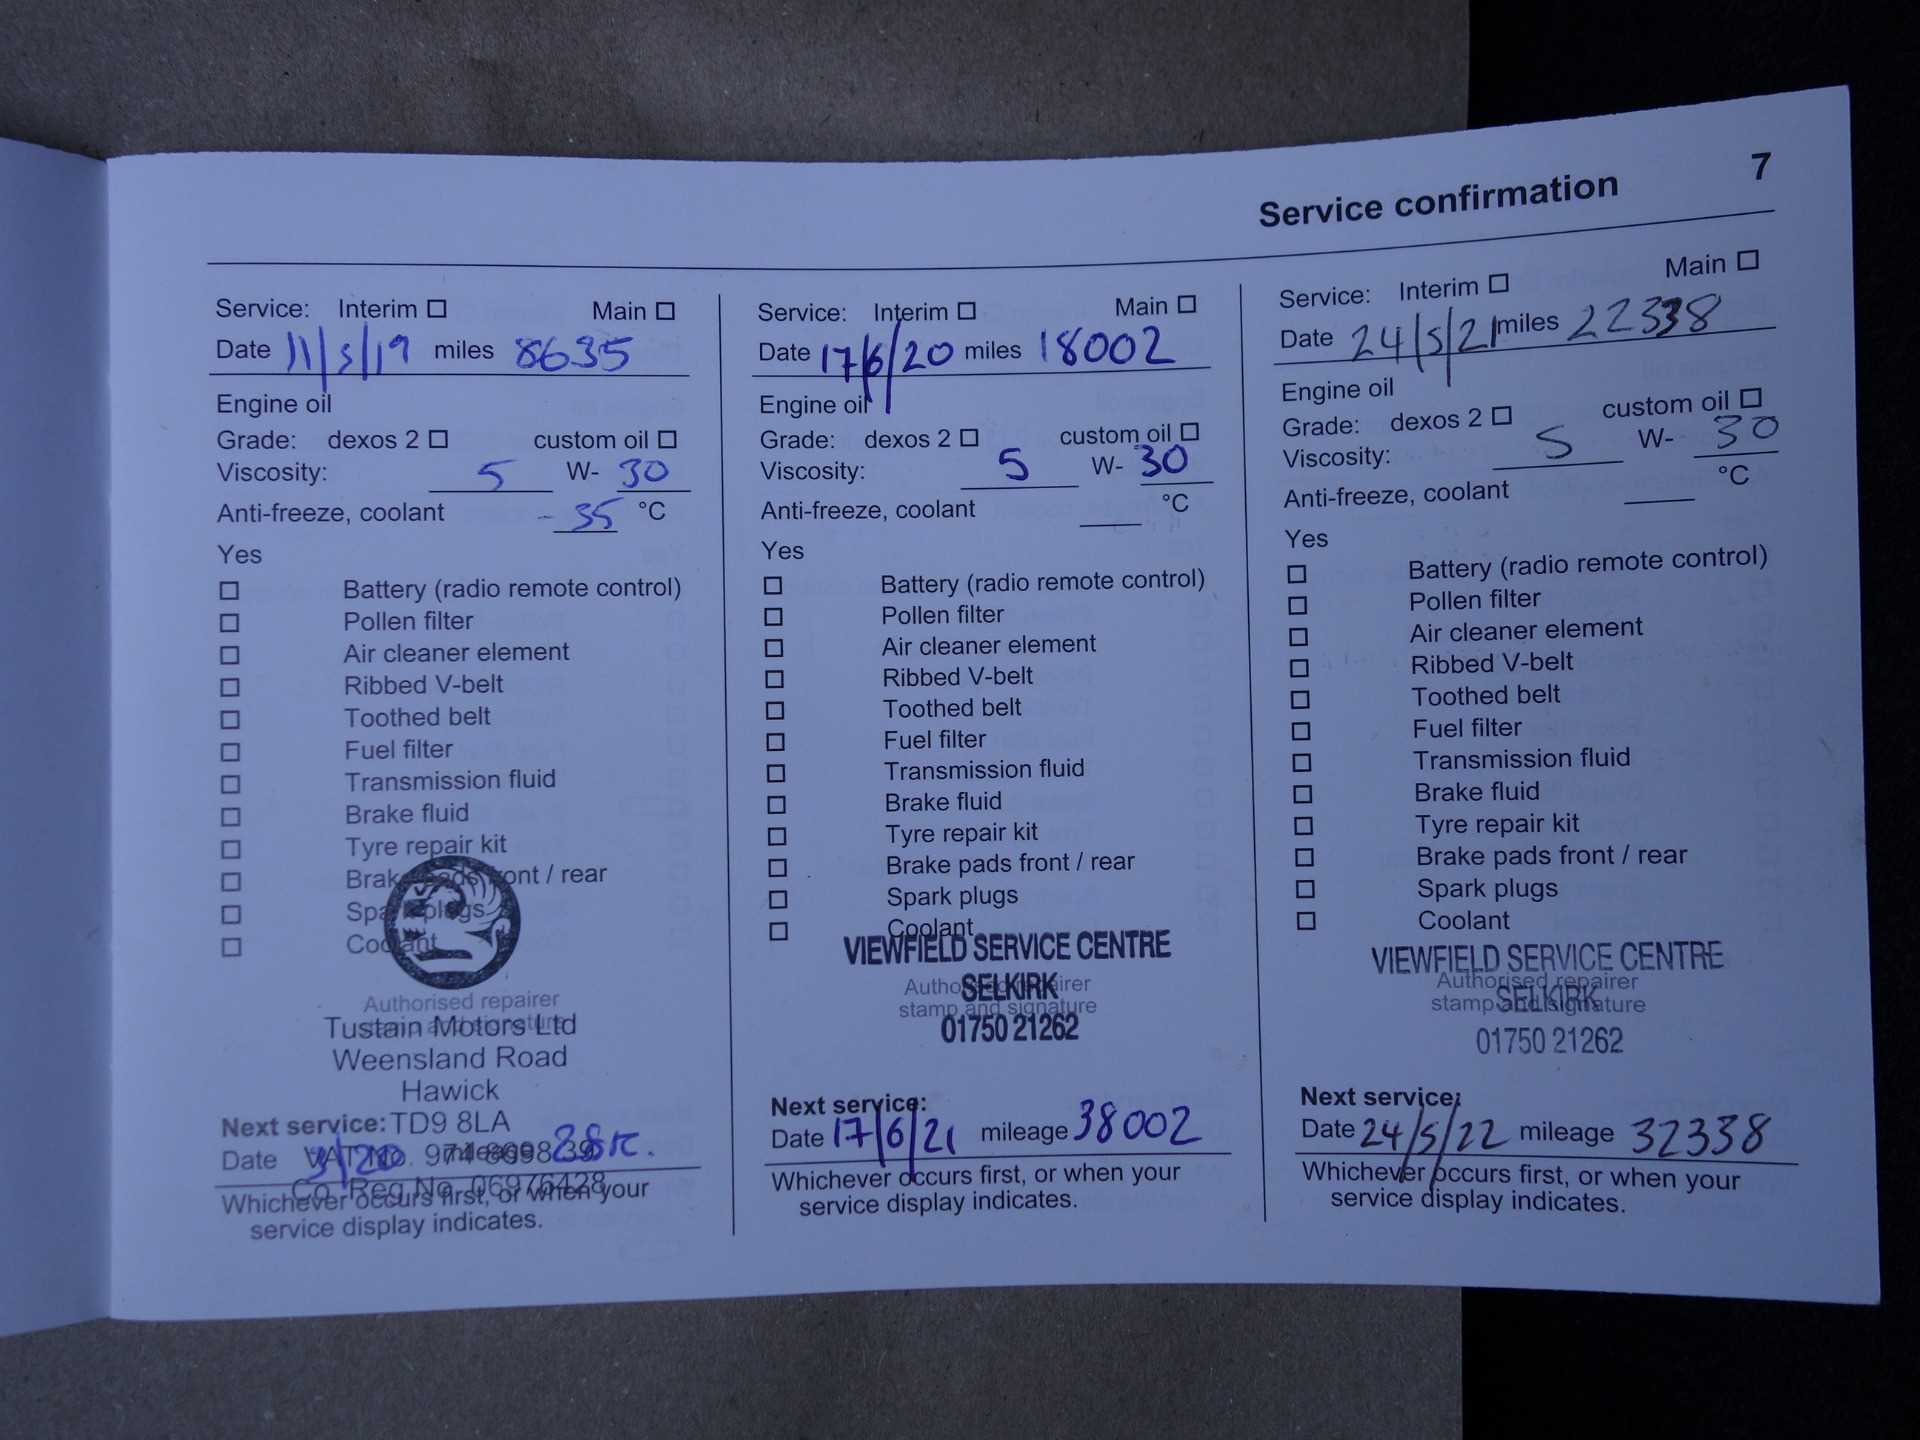 7
Service confirmation
Service: Interim Main
Date 11/5/19 miles 8635
Engine oil
Grade: dexos 2 custom oil
Viscosity: 5 W- 30
Anti-freeze, coolant - 35 °C
Yes
Battery (radio remote control)
Pollen filter
Air cleaner element
Ribbed V-belt
Toothed belt
Fuel filter
Transmission fluid
Brake fluid
Tyre repair kit
Brake pads front / rear
Spark plugs
Coolant
Authorised repairer
stamp and signature
Tustain Motors Ltd
Weensland Road
Hawick
TD9 8LA
Next service:
VAT No.
Date mileage 28K.
Co. Reg No. 06976428
Whichever occurs first, or when your
service display indicates.
Service: Interim Main
Date 17/6/20 miles 18002
Engine oil
Grade: dexos 2 custom oil
Viscosity: 5 W- 30
Anti-freeze, coolant °C
Yes
Battery (radio remote control)
Pollen filter
Air cleaner element
Ribbed V-belt
Toothed belt
Fuel filter
Transmission fluid
Brake fluid
Tyre repair kit
Brake pads front / rear
Spark plugs
Coolant
VIEWFIELD SERVICE CENTRE
Authorised repairer
SELKIRK
stamp and signature
01750 21262
Next service:
Date 17/6/21 mileage 38002
Whichever occurs first, or when your
service display indicates.
Service: Interim Main
Date 24/5/21 miles 22338
Engine oil
Grade: dexos 2 custom oil
Viscosity: 5 W- 30
Anti-freeze, coolant °C
Yes
Battery (radio remote control)
Pollen filter
Air cleaner element
Ribbed V-belt
Toothed belt
Fuel filter
Transmission fluid
Brake fluid
Tyre repair kit
Brake pads front / rear
Spark plugs
Coolant
VIEWFIELD SERVICE CENTRE
Authorised repairer
SELKIRK
stamp and signature
01750 21262
Next service:
Date 24/5/22 mileage 32338
Whichever occurs first, or when your
service display indicates.